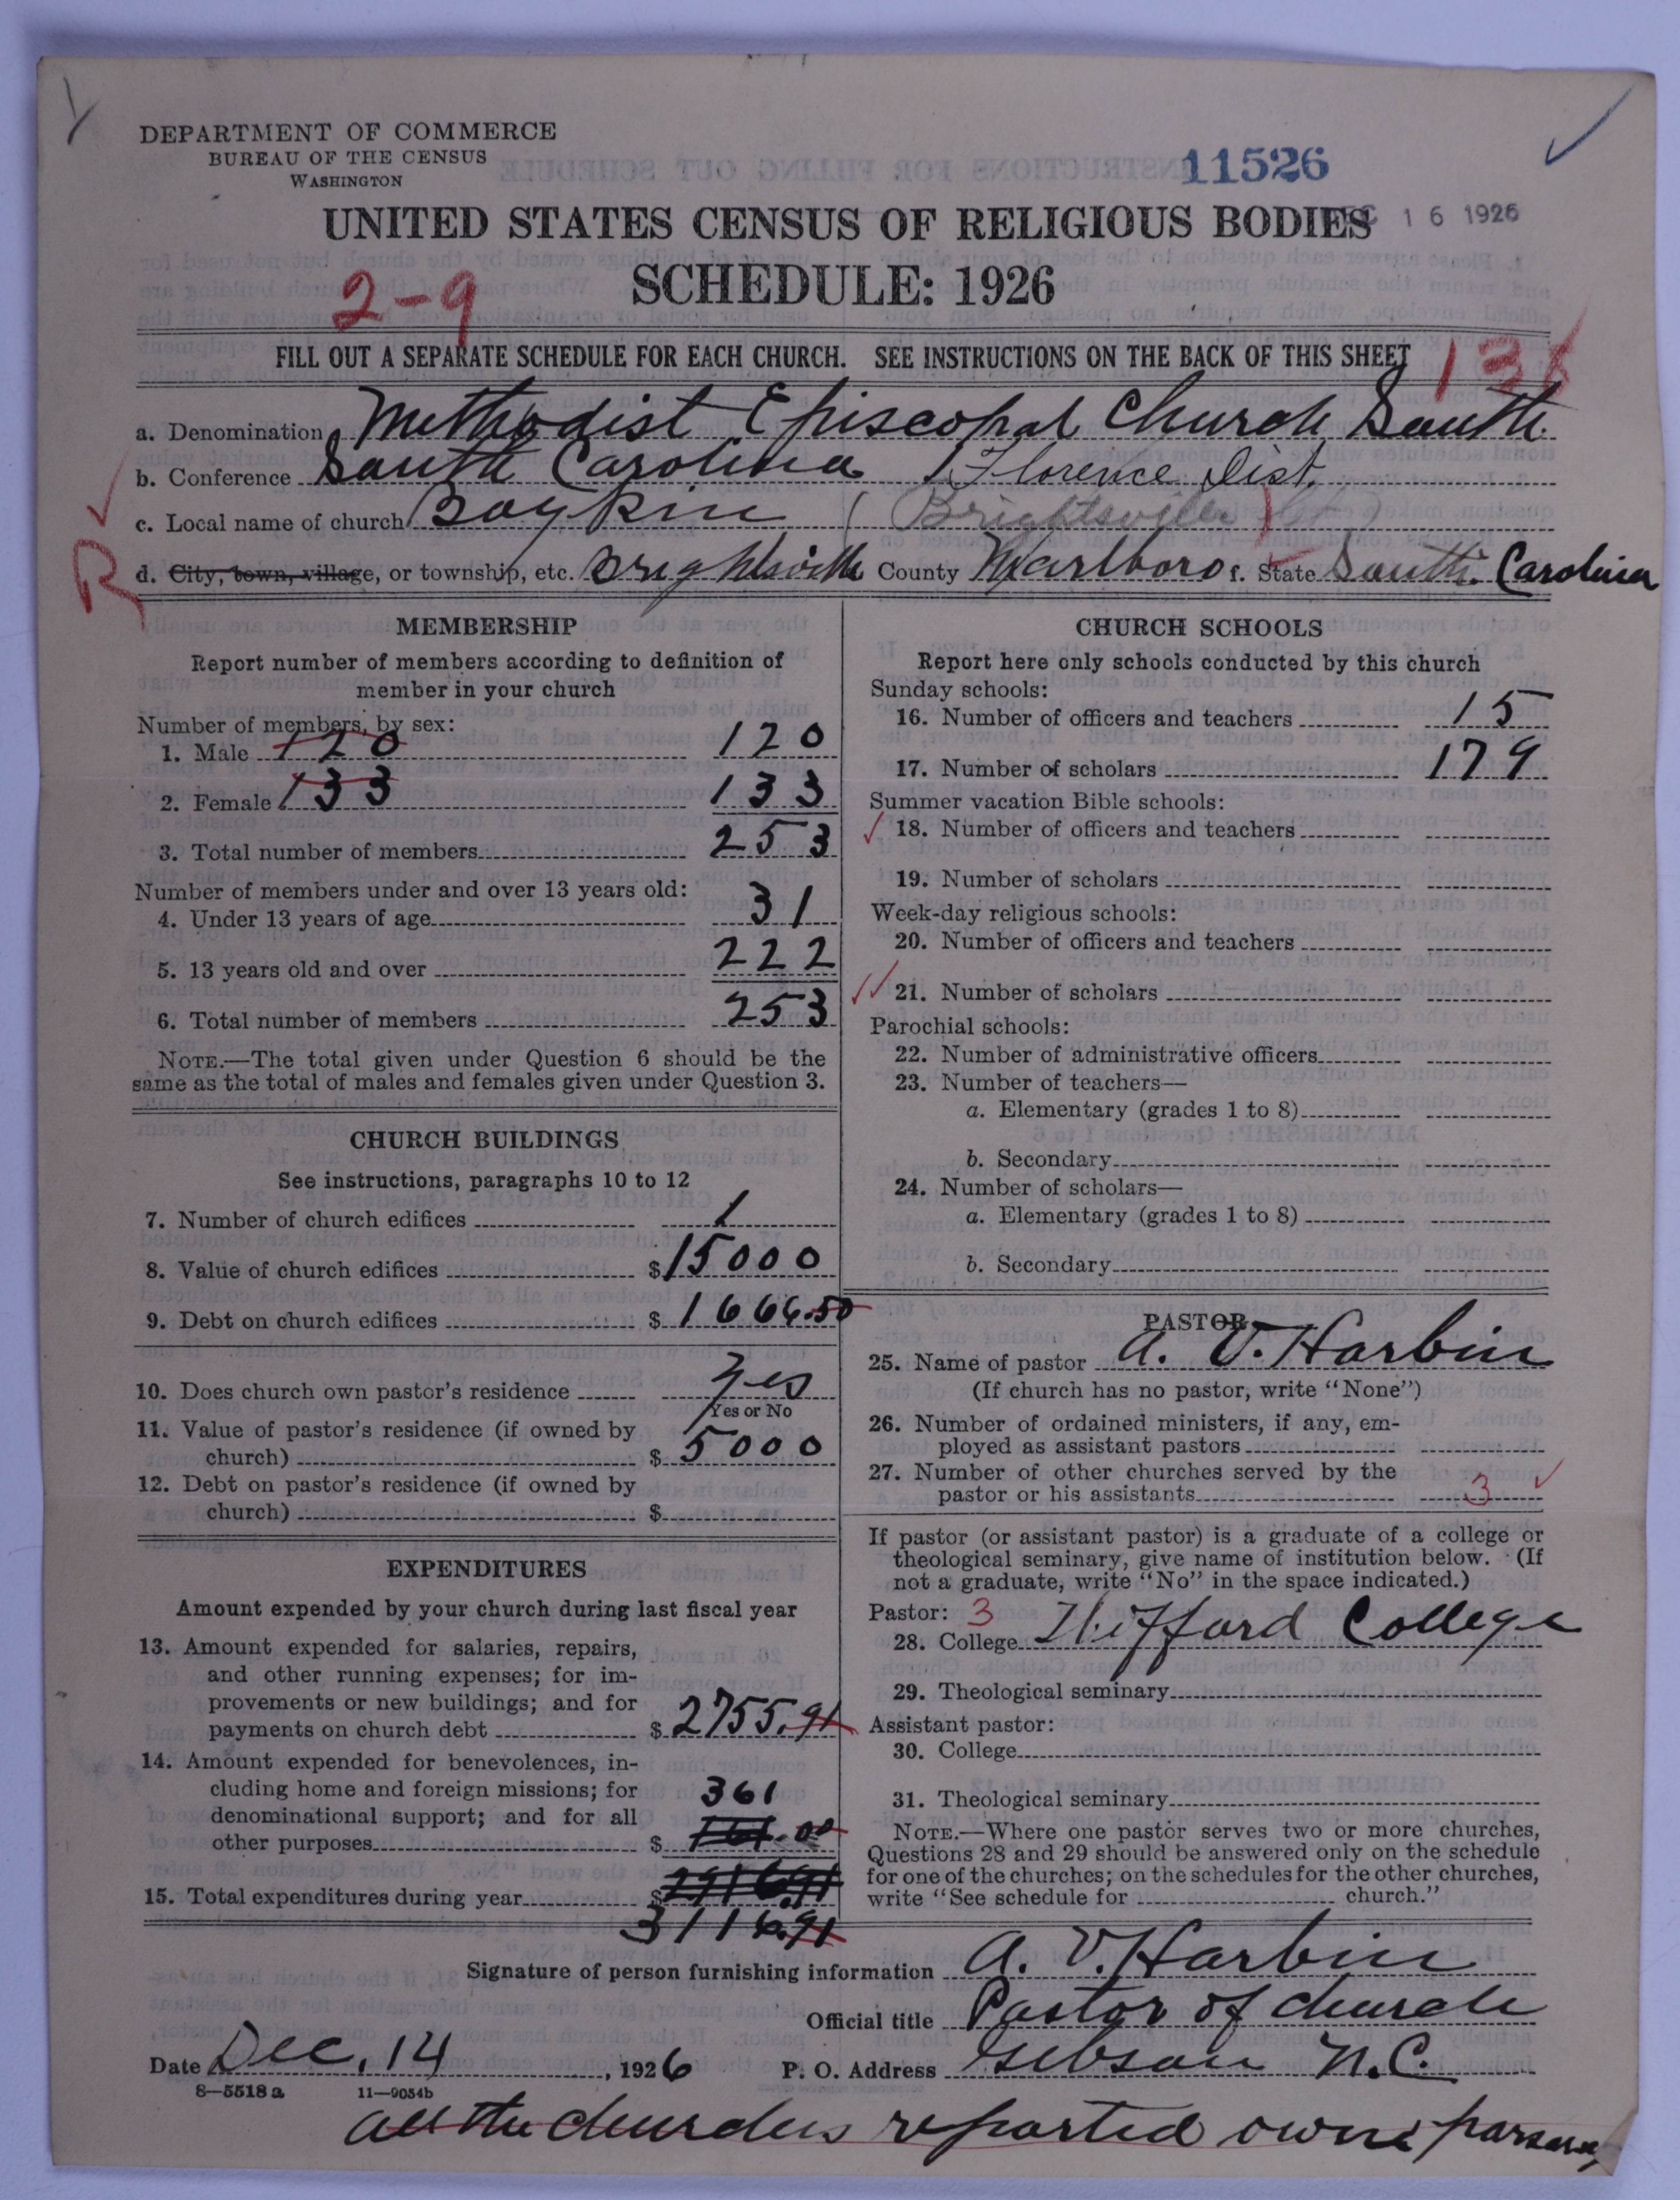 DEPARTMENT OF COMMERCE
BUREAU OF THE CENSUS
WASHINGTON
11526
UNITED STATES CENSUS OF RELIGIOUS BODIES
16 1926
SCHEDULE: 1926
2-9
FILL OUT A SEPARATE SCHEDULE FOR EACH CHURCH. SEE INSTRUCTIONS ON THE BACK OF THIS SHEET
a. Denomination Methodist Episcopal Church South
b. Conference South Carolina Florence Dist.
c. Local name of church Boykin (Brightsville
R
d. City, town, village, or township, etc. Brightsville County Marlboro f. State South Carolina
MEMBERSHIP
Report number of members according to definition of
member in your church
Number of members, by sex:
1. Male 120 120
2. Female 133 133
3. Total number of members 253
Number of members under and over 13 years old:
4. Under 13 years of age 31
5. 13 years old and over 222
6. Total number of members 253
NOTE.—The total given under Question 6 should be the
same as the total of males and females given under Question 3.
CHURCH BUILDINGS
See instructions, paragraphs 10 to 12
7. Number of church edifices 1
8. Value of church edifices $15000
9. Debt on church edifices $1666.50
10. Does church own pastor's residence Yes
Yes or No
11. Value of pastor's residence (if owned by
church) $5000
12. Debt on pastor's residence (if owned by
church) $
EXPENDITURES
Amount expended by your church during last fiscal year
13. Amount expended for salaries, repairs,
and other running expenses; for im-
provements or new buildings; and for
payments on church debt $2755.91
14. Amount expended for benevolences, in-
cluding home and foreign missions; for
361
denominational support; and for all
other purposes $ .00
15. Total expenditures during year $2916.91
3116.91
CHURCH SCHOOLS
Report here only schools conducted by this church
Sunday schools:
16. Number of officers and teachers 15
17. Number of scholars 179
Summer vacation Bible schools:
18. Number of officers and teachers
19. Number of scholars
Week-day religious schools:
20. Number of officers and teachers
21. Number of scholars
Parochial schools:
22. Number of administrative officers
23. Number of teachers—
a. Elementary (grades 1 to 8)
b. Secondary
24. Number of scholars—
a. Elementary (grades 1 to 8)
b. Secondary
PASTOR
25. Name of pastor A. V. Harbin
(If church has no pastor, write "None")
26. Number of ordained ministers, if any, em-
ployed as assistant pastors
27. Number of other churches served by the
pastor or his assistants 3
If pastor (or assistant pastor) is a graduate of a college or
theological seminary, give name of institution below. (If
not a graduate, write "No" in the space indicated.)
Pastor: 3
28. College Wofford College
29. Theological seminary
Assistant pastor:
30. College
31. Theological seminary
NOTE.—Where one pastor serves two or more churches,
Questions 28 and 29 should be answered only on the schedule
for one of the churches; on the schedules for the other churches,
write "See schedule for church."
Signature of person furnishing information A. V. Harbin
Official title Pastor of church
Date Dec. 14, 1926 P. O. Address Gibson N.C.
8—5518a 11—9054b
All the churches reported own parsonage